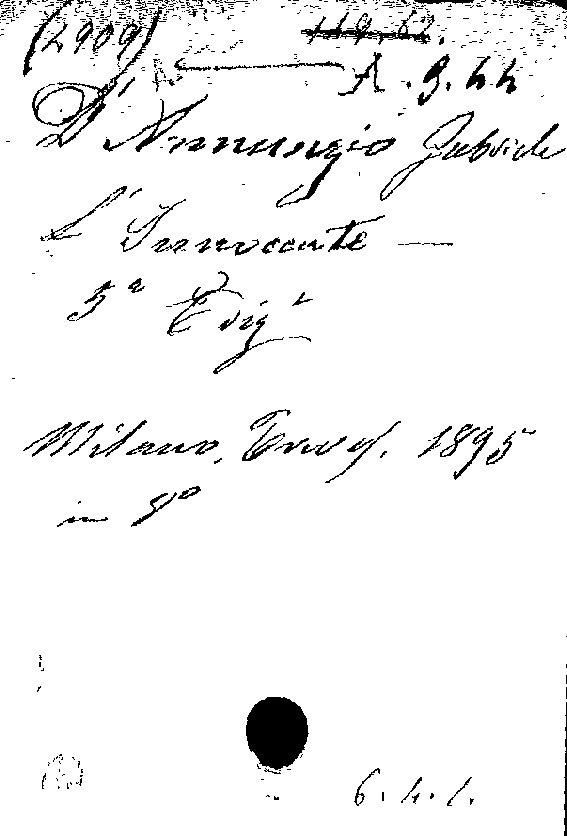 (2909) 119.62.
A. 9. 44
D'Annunzio Gabriele
L'Innocente —
5ª Ediz.
Milano, Treves. 1895
in 8º